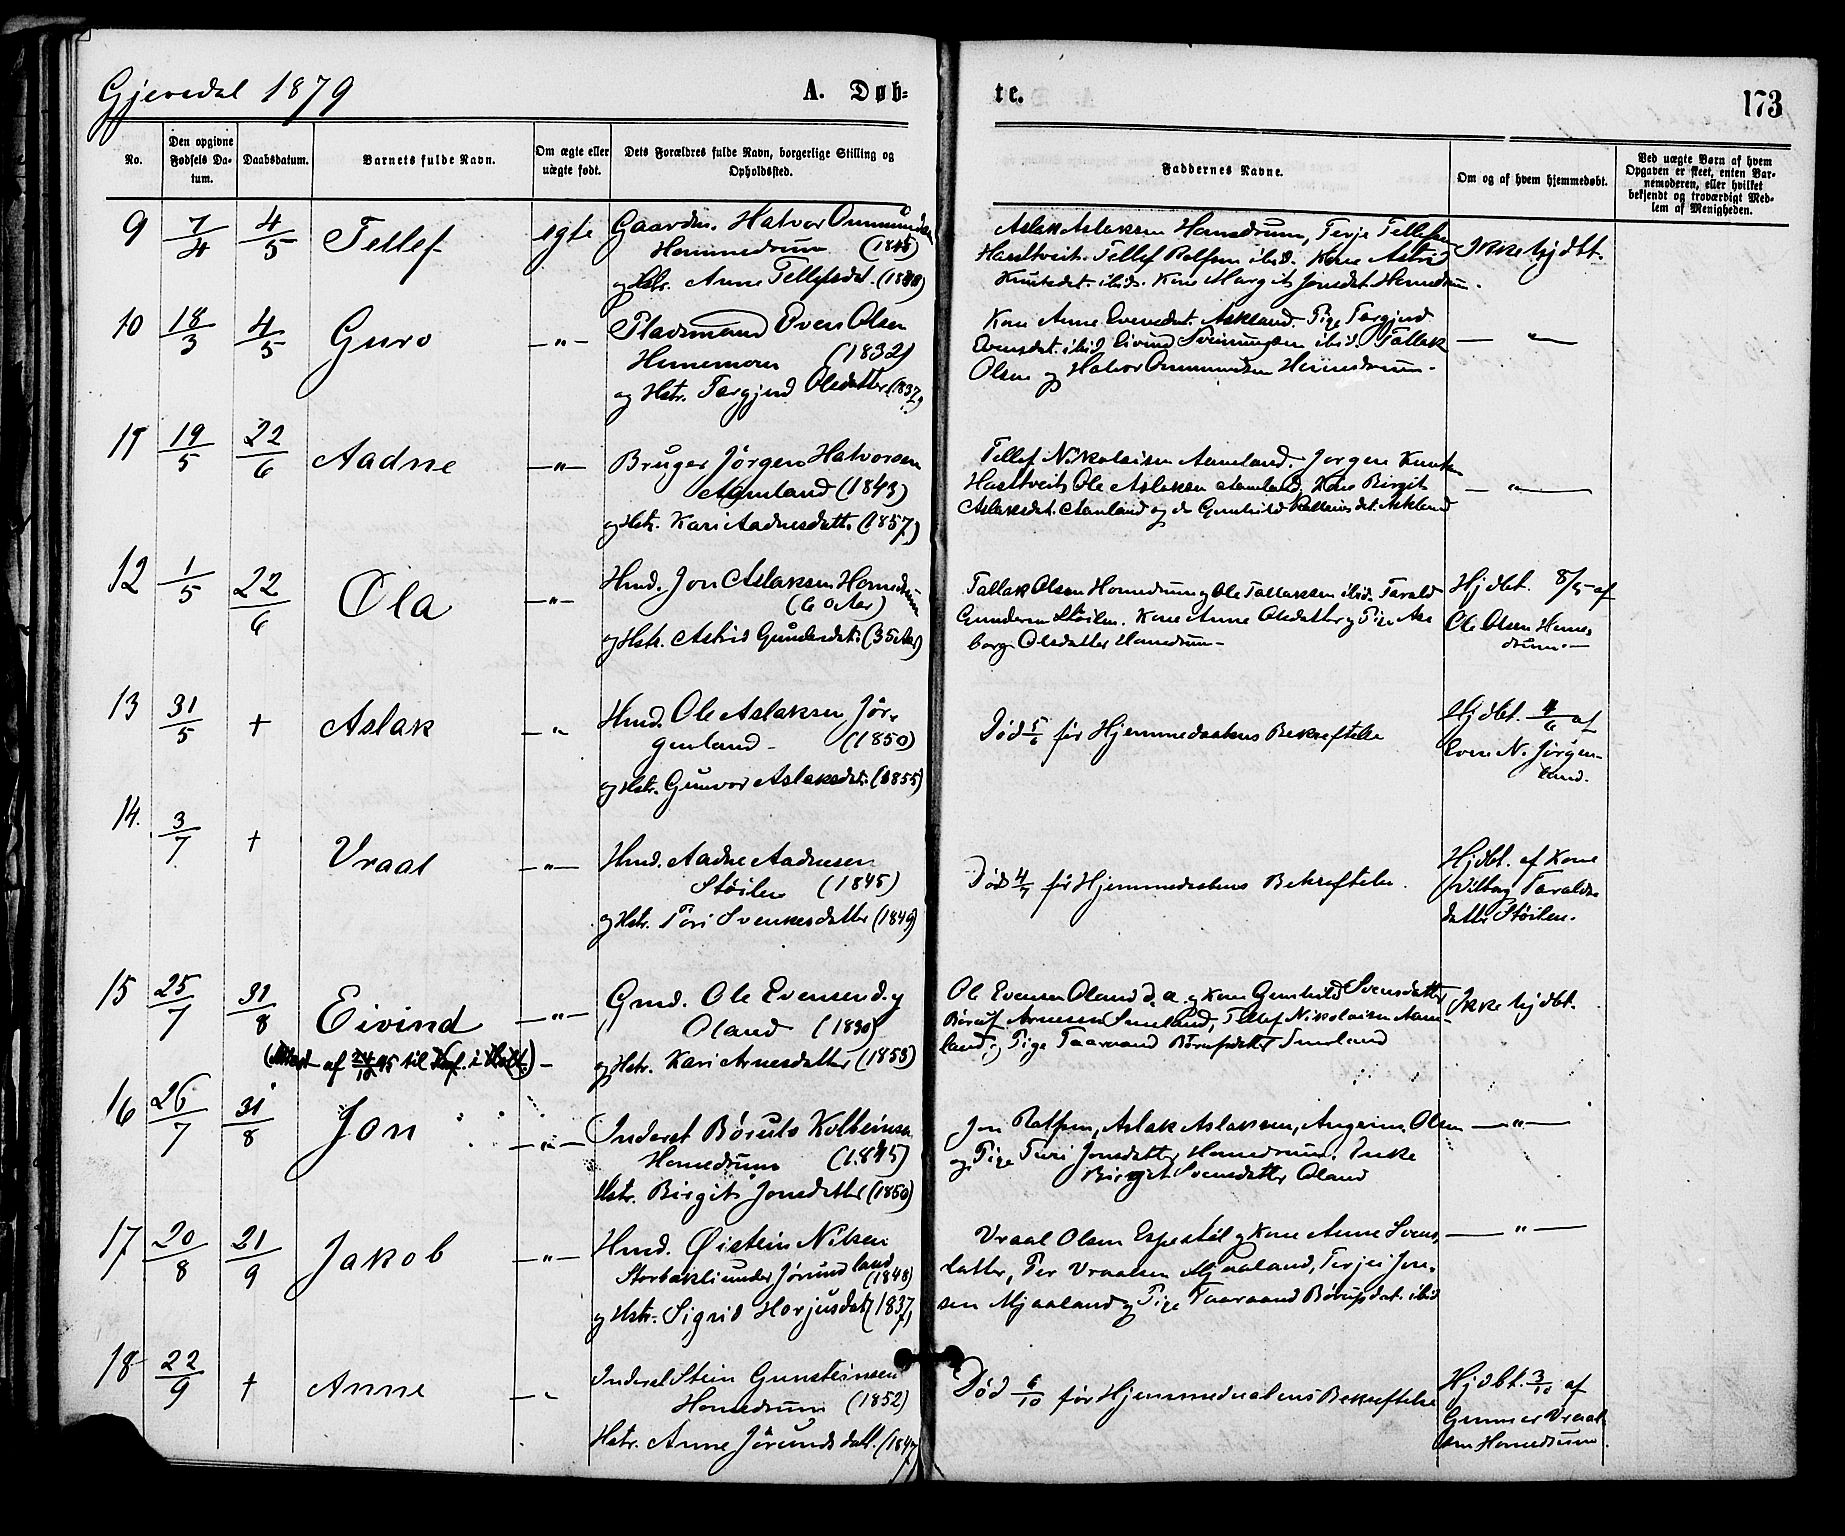 Gjevedal 1879
A. Døb-
te.
173
No.
Den opgivne
Fødsels Da-
tum.
Daabsdatum.
Barnets fulde Navn.
Om ægte eller
uægte født.
Dets Forældres fulde Navn, borgerlige Stilling og
Opholdssted.
Faddernes Navne.
Om og af hvem hjemmedøbt.
Ved uægte Børn af hvem
Opgaven er skeet, enten Bar-
nemoderen, eller hvilket
bekjendt og troværdigt Med-
lem af Menigheden.
9 7/4 4/5 Tellef egte Gaardm. Halvor Ommundsen
Hommedrum
og Hstr. Anne Tellefsdt.
Aslak Aslaksen Homedrum, Terje Tellefsen
Hasttveit. Tellef Rolfsen ibid. Kone Astrid
Knutsdt. ibid. Kone Margit Jonsdt. Homedrum.
Ikke hjdbt.
10 18/3 4/5 Guro —"— Pladsmand Even Olsen
Hememoen (1832)
og Hstr. Torgjerd Olsdatter (1837)
Kone Anne Evensdt. Askland. Pige Torgjerd
Evensdt. ibid Eivind Sveinungsen ibid. Tallak
Olsen og Halvor Ommundsen Homedrum.
— " —
11 19/5 22/6 Aadne —"— Bruger Jørgen Halvorsen
Aamland (1843)
og Hstr. Kari Aadnesdatt. (1857)
Tellef Nikolaisen Aamland. Jørgen Knutsen
Hasttveit, Ole Aslaksen Aamland, Kone Birgit
Aslaksdt. Aamland og do Gunhild dt. Askland
— " —
12 1/5 22/6 Ola —"— Hmd. Jon Aslaksen Homedrum
(60 Aar)
og Hstr. Astrid Gundersdt. (35 Aar)
Tallak Olsen Homedrum og Ole Tallaksen ibid. Tarald
Gundersen Støilen. Kone Anne Olsdatter og Pige Aas
borg Olsdatter Homedrum —
Hjdbt. 8/5 af
Ole Olsen Home
drum.—
13 31/5 + Aslak —"— Hmd. Ole Aslaksen Jør-
genland — (1850)
og Hstr. Gunvor Aslaksdt. (1855)
Død 5/6 før Hjemmedaabens Bekræftelse
Hjdbt. 4/6 af
Even N. Jørgen-
land.
14. 3/7 + Vraal —"— Hmd. Aadne Aadnesen
Støilen (1845)
og Hstr. Tori Svenkesdatter (1849)
Død 4/7 før Hjemmedaabens Bekræftelse.
Hjdbt. af Kone
Vilborg Taralds
datter Støilen.
15 25/7 31/8 Eivind —"— Gmd. Ole Evensen d. y
Oland (1830)
og Hstr. Kari Arnesdatter (1853)
(Attest af 24/10 95 til Konf. i Holt.) —
Ole Evensen Oland d. æ. og Kone Gunhild Svensdatter
Børuf Arnesen Smeland, Tellef Nikolaisen Aam-
land og Pige Taarand Børufsdatter Smeland
Ikke hjdbt.
16 26/7 31/8 Jon —"— Inderst Børuls Kolbeinsen
Homedrum (1845)
Hstr. Birgit Jonsdatter (1850)
Jon Rolfsen, Aslak Aslaksen, Olsen
og Pige Turi Jonsdatter Homedrum. Enke
Birgit Svensdatter Oland
— " —
17 20/8 21/9 Jakob —"— Hmd. Øistein Nilsen
Storbakli under Jørundland
(1848)
og Hstr. Sigrid Horjusdat (1837)
Vraal Olsen Espestøl og Kone Anne Svens-
datter, Per Vraalsen Mjaaland, Terjei Jen-
sen Mjaaland og Pige Taaraand Børufsdat. ibid
— " —
18 22/9 + Anne —"— Inderst Stein Gunsteinsen
Homedrum (1852)
Hstr. Anne Jørundsdatt. (1847)
Død 6/10 før Hjemmedaabens Bekræftelse
Hjdbt. 3/10 af
Gunner Vraal
sen Homedrum.